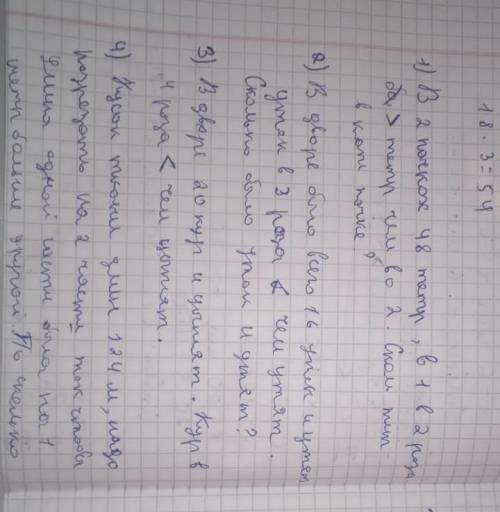 18 · 3 = 54
1) В 2 пачках 48 тетр, в 1 в 2 раза
ба > тетр чем во 2. Скол тет
в кажд пачке?
2) В дворе было всего 16 уток и утят
уток в 3 раза < чем утят.
Сколько было уток и утят?
3) В дворе 20 кур и цыплят. Кур в
4 раза < чем цыплят.
4) Кусок ткани длин 124 м, надо
разрезать на 2 части так чтобы
длина одной части была на 1
метр больше другой. По сколько